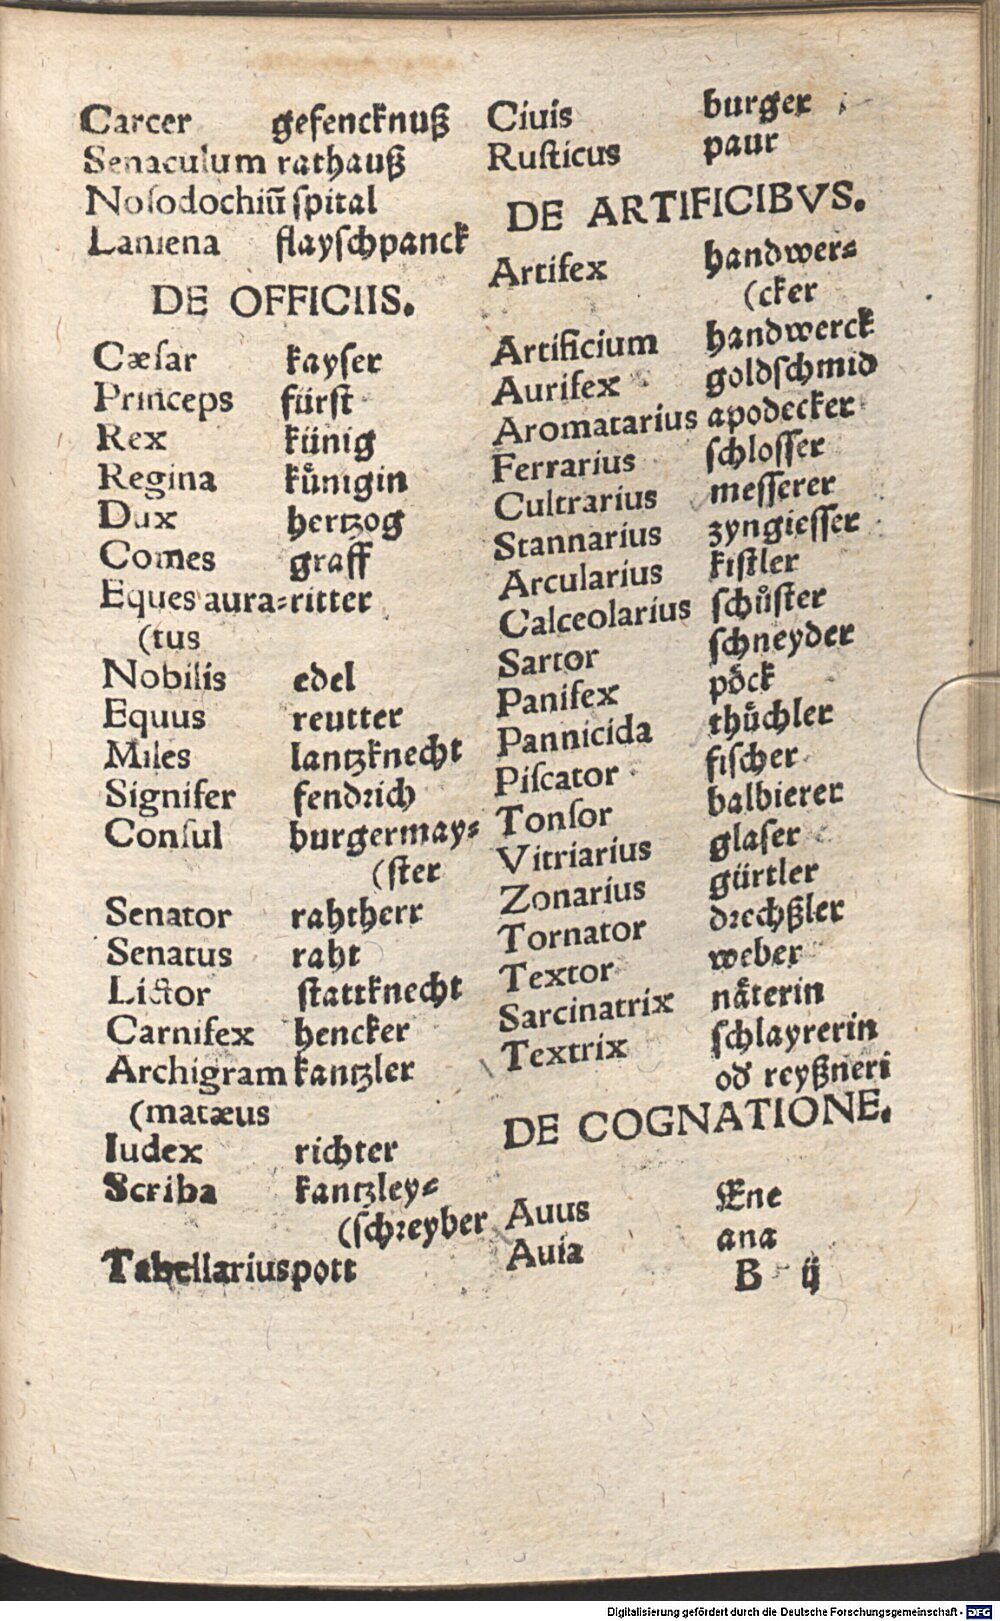 Carcer gefencknuß
Senaculum rathauß
Nosodochiū spital
Laniena flayschpanck
DE OFFICIIS.
Cæſar kayſer
Princeps fürſt
Rex künig
Regina kůnigin
Dux hertzog
Comes graff
Eques aura⸗ ritter
(tus
Nobilis edel
Equus reutter
Miles lantzknecht
Signifer fendrich
Conſul burgermay⸗
(ſter
Senator rahtherr
Senatus raht
Lictor ſtattknecht
Carnifex hencker
Archigram kantzler
(matæus
Iudex richter
Scriba kantzley⸗
(ſchreyber
Tabellarius pott
Ciuis burger
Ruſticus paur
DE ARTIFICIBVS.
Artifex handwer⸗
(cker
Artificium handwerck
Aurifex goldſchmid
Aromatarius apodecker
Ferrarius ſchloſſer
Cultrarius meſſerer
Stannarius zyngieſſer
Arcularius kiſtler
Calceolarius ſchůſter
Sartor ſchneyder
Panifex poͤck
Pannicida thuͤchler
Piſcator fiſcher
Tonſor balbierer
Vitriarius glaſer
Zonarius gürtler
Tornator drechßler
Textor weber
Sarcinatrix naͤterin
Textrix ſchlayrerin
od' reyßneri
DE COGNATIONE.
Auus Ene
Auia ana
B ij
Digitalisierung gefördert durch die Deutsche Forschungsgemeinschaft - DFG